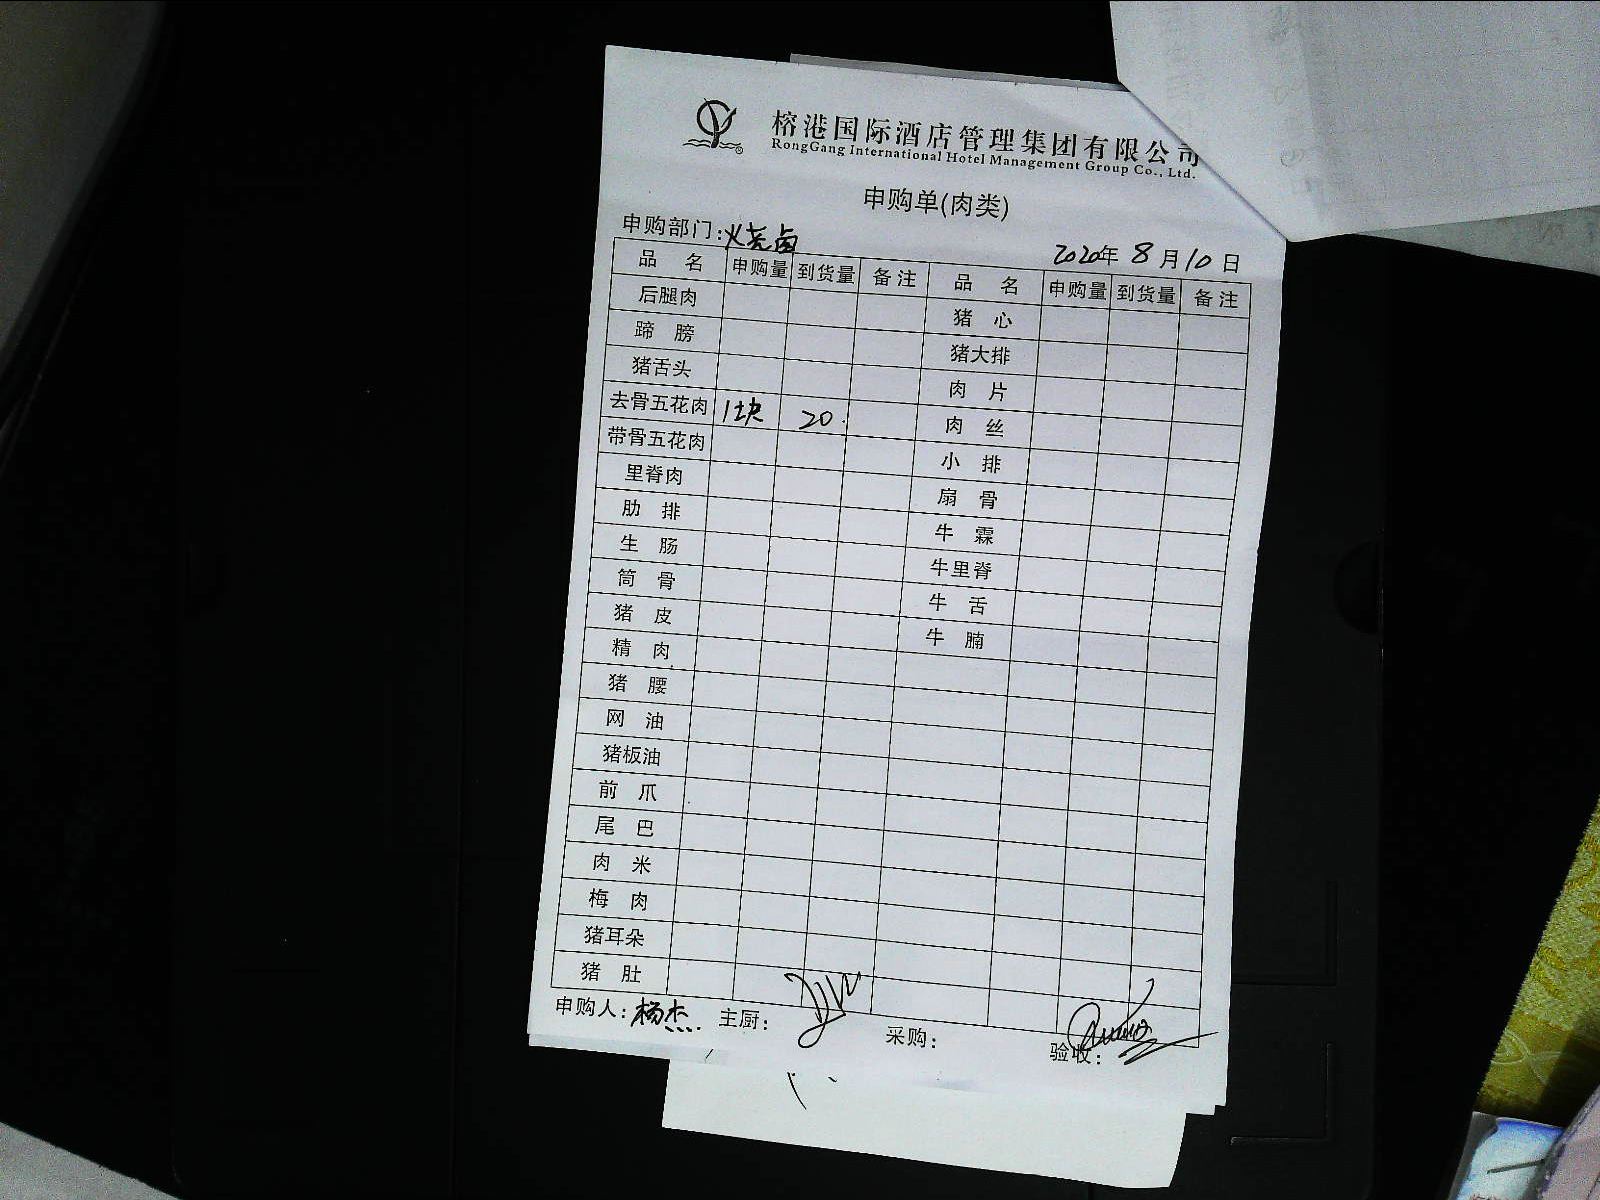 榕港国际酒店管理集团有限公司
RongGang International Hotel Management Group Co., Ltd.
申购单(肉类)
申购部门:烧卤 2020年 8月10日
品名 申购量 到货量 备注 品名 申购量 到货量 备注
后腿肉 猪心
蹄膀 猪大排
猪舌头 肉片
去骨五花肉 1块 20. 肉丝
带骨五花肉 小排
里脊肉 扇骨
肋排 牛霖
生肠 牛里脊
筒骨 牛舌
猪皮 牛腩
精肉
猪腰
网油
猪板油
前爪
尾巴
肉米
梅肉
猪耳朵
猪肚
申购人:杨杰 主厨: 采购: 验收: